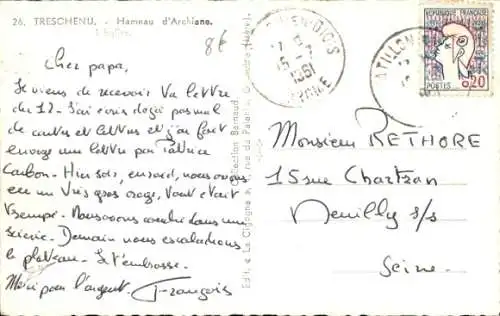 26. TRESCHENU. - Hameau d'Archiane.
L'Eglise.
8€
Cher papa,
Je viens de recevoir ta lettre
du 12- J'ai écris dejà pas mal
de cartes et lettres et j'ai fait
envoyé une lettre par Patrice
Carbon- Hier soir, en , nous avons
eu un très gros orage, tout était
trempé. Nous avons couché dans une
scierie. Demain nous escaladons
le plateau. Je t'embrasse.
Merci pour l'argent. François
Edit. "La Cigogne", rue du Palais, Grenoble
Collection Barnaud,
1961
DROME
CHATILLON
REPUBLIQUE FRANCAISE
POSTES 0,20
Monsieur RETHORE
15 rue Chartran
Neuilly s/s
Seine.